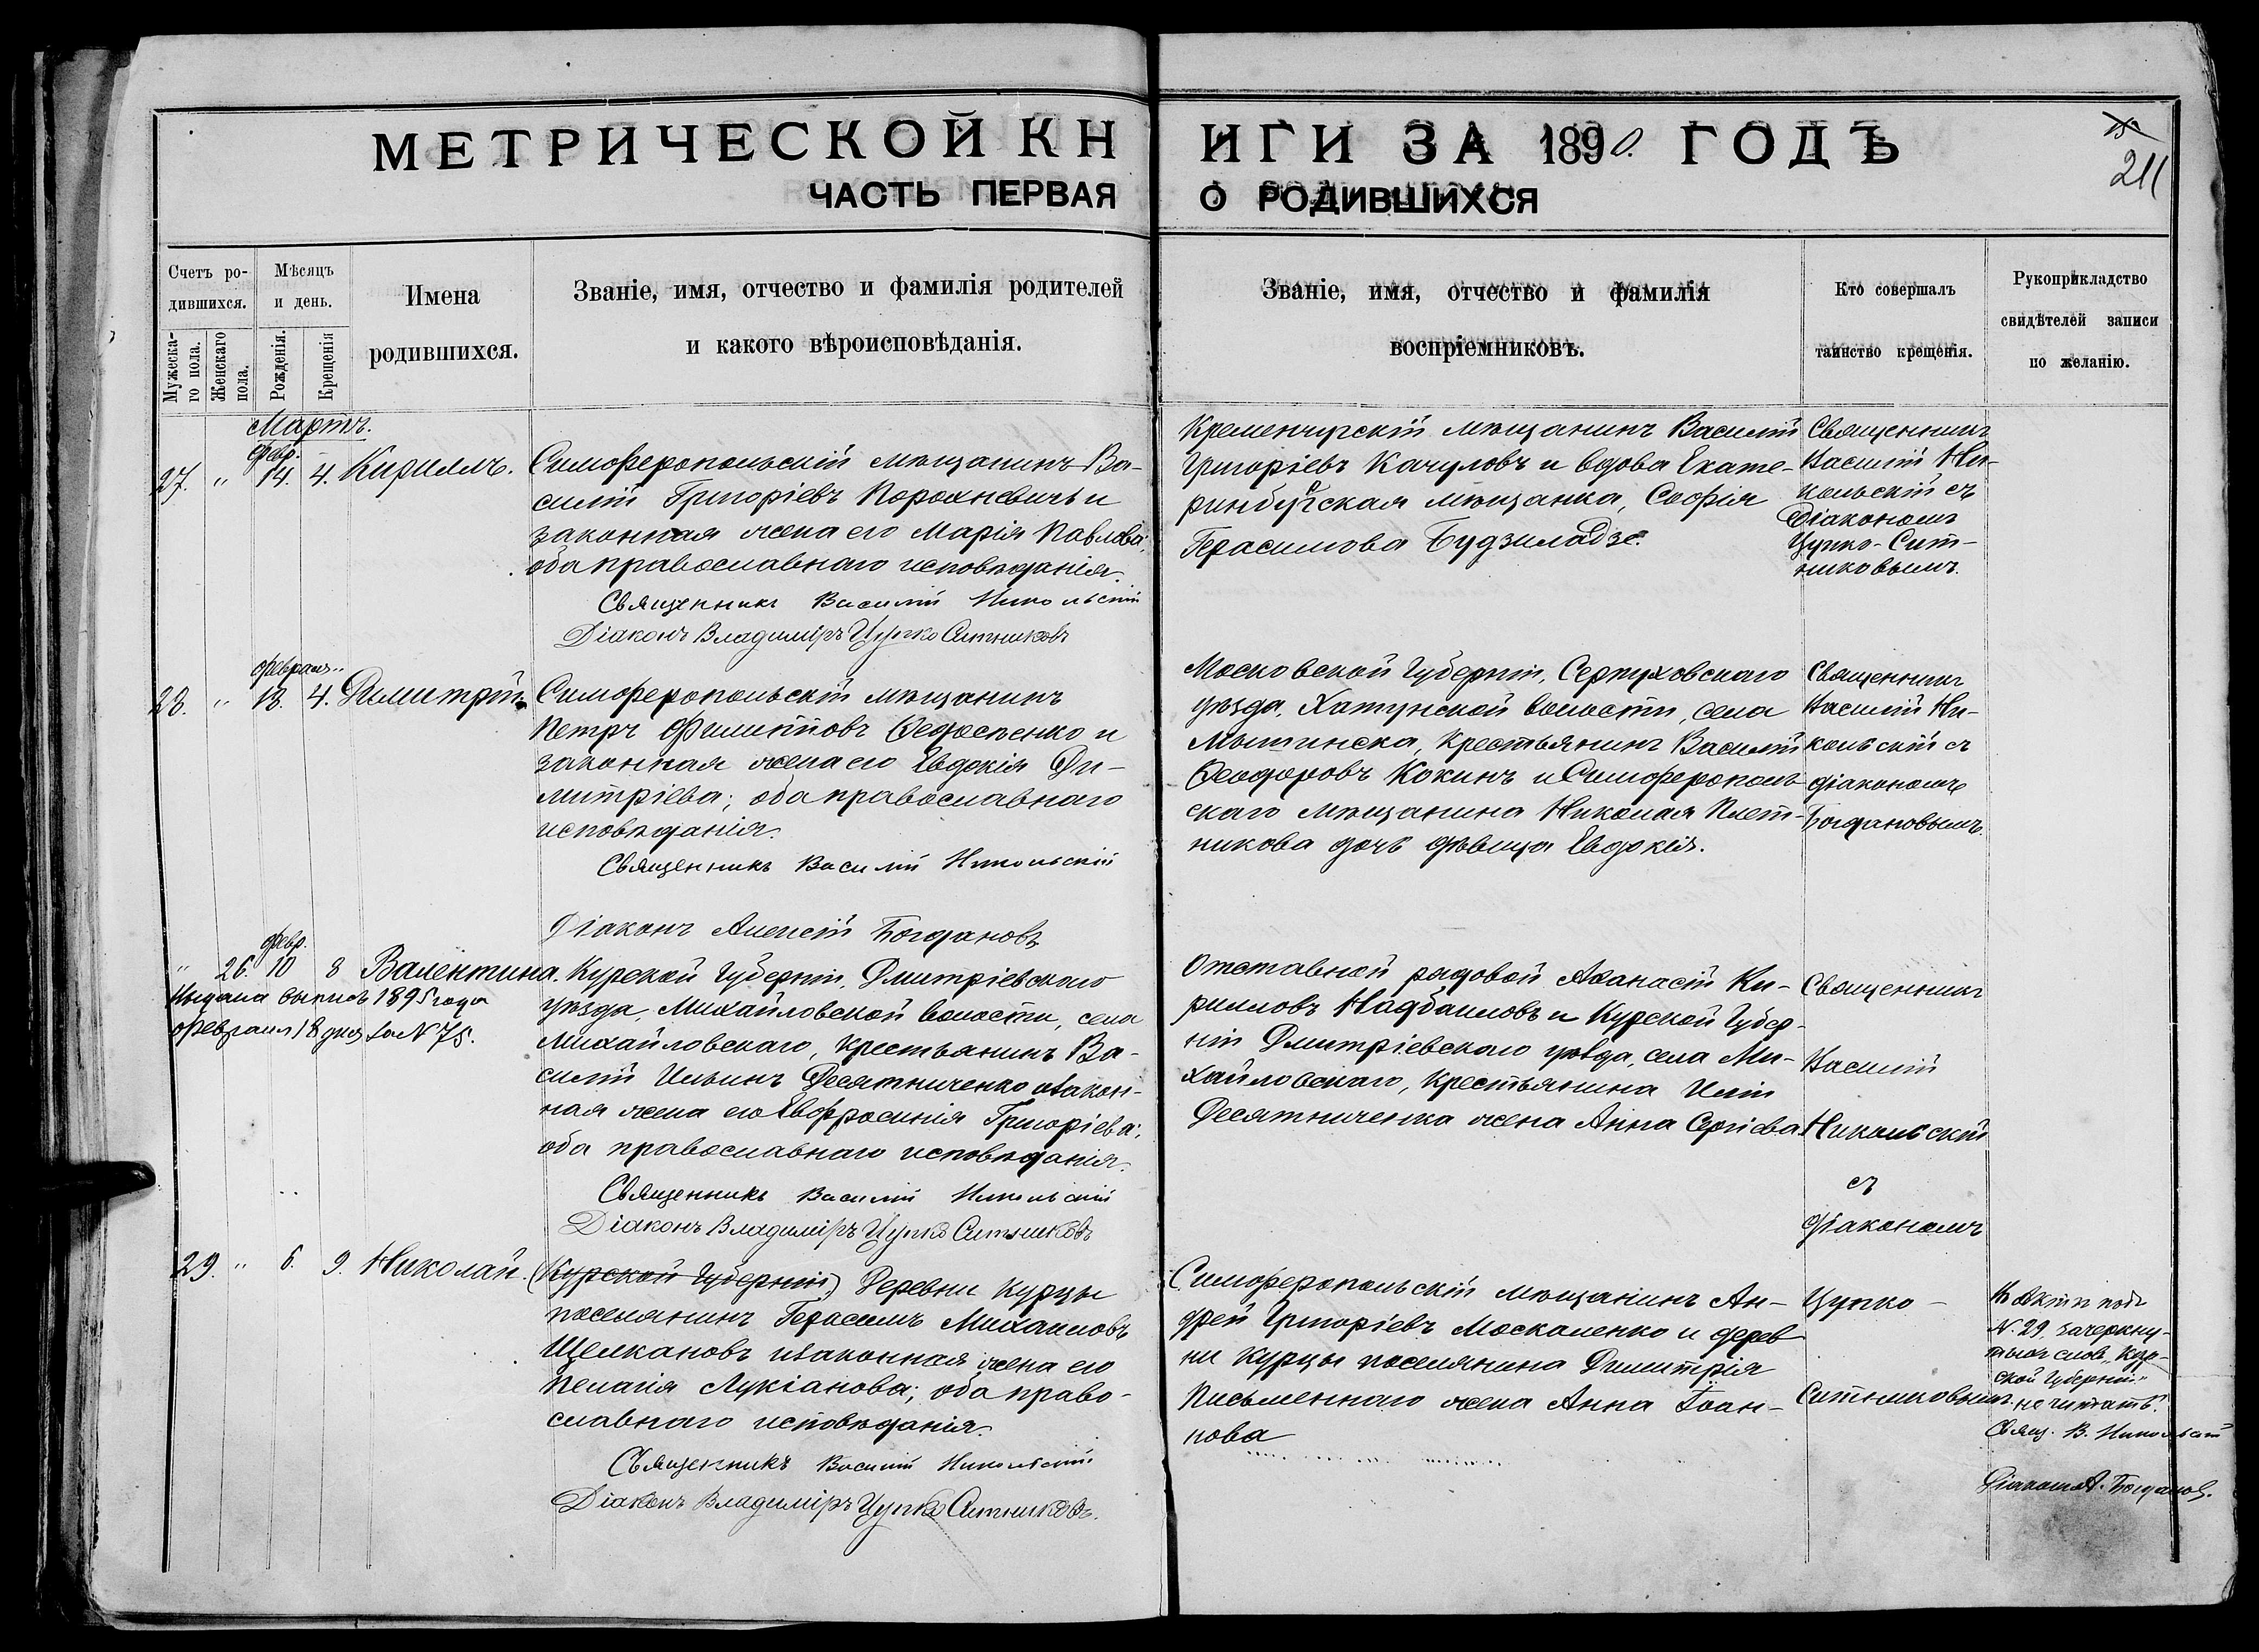 МЕТРИЧЕСКОЙ КНИГИ ЗА 1890. ГОДЪ
ЧАСТЬ ПЕРВАЯ О РОДИВШИХСЯ
211
Счетъ ро-
дившихся.
Мужеска-
го пола.
Женскаго
пола.
Мѣсяцъ
и день.
Рожденія.
Крещенія
Имена
родившихся.
Званіе, имя, отчество и фамилія родителей
и какого вѣроисповѣданія.
Званіе, имя, отчество и фамилія
воспріемниковъ.
Кто совершалъ
таинство крещенія.
Рукоприкладство
свидѣтелей записи
по желанію.
Мартъ.
февр.
27. " 14. 4. Кириллъ.
Симферопольскій мѣщанинъ Ва-
силій Григоріевъ Порохневичъ и
законная жена его Марія Павлова;
оба православнаго исповѣданія.
Священникъ Василій Никольскій
Діаконъ Владиміръ Цупко Ситниковъ
Кременчугскій мѣщанинъ Василій
Григоріевъ Качуловъ и вдова Екате-
ринбургская мѣщанка, Софія
Герасимова Будзиладзе.
Священникъ
Василій Ни-
кольскій съ
Діакономъ
Цупко-Сит-
никовымъ.
февраль
28. " 18. 4. Димитрій.
Симферопольскій мѣщанинъ
Петръ Филипповъ Федосенко и
законная жена его Евдокія Ди-
митріева; оба православнаго
исповѣданія.
Священникъ Василій Никольскій
Діаконъ Алексій Богдановъ
Московской Губерніи, Серпуховскаго
уѣзда, Хатунской волости, села
Мышинска, Крестьянинъ Василій
Ѳеодоровъ Кокинъ и Симферополь-
скаго мѣщанина Николая Плет-
никова дочь дѣвица Евдокія.
Священникъ
Василій Ни-
кольскій съ
діакономъ
Богдановымъ.
февр.
" 26. 10 8 Валентина.
Выдана выпись 1895 года
февраля 18 дня за № 75.
Курской Губерніи, Дмитріевскаго
уѣзда, Михайловской волости, села
Михайловскаго, Крестьянинъ Ва-
силій Ильинъ Десятниченко и закон-
ная жена его Евфросинія Григоріева;
оба православнаго исповѣданія.
Священникъ Василій Никольскій
Діаконъ Владиміръ Цупко Ситниковъ
Отставной рядовой Аѳанасій Ки-
рилловъ Надбаиловъ и Курской Губер-
ніи Дмитріевскаго уѣзда, села Ми-
хайловскаго, Крестьянина Иліи
Десятниченка жена Анна Сергіева
Священникъ
Василій
Никольскій
съ
діакономъ
Цупко-
Ситниковымъ.
29. " 6. 9. Николай.
(Курской Губерніи) Деревни Курцы
поселянинъ Герасимъ Михаиловъ
Шелкановъ и законная жена его
Пелагія Лукіанова; оба право-
славнаго исповѣданія.
Священникъ Василій Никольскій
Діаконъ Владиміръ Цупко Ситниковъ.
Симферопольскій мѣщанинъ Ан-
дрей Григоріевъ Москаленко и дерев-
ни Курцы поселянина Димитрія
Письменнаго жена Анна Іоан-
нова
Въ актѣ подъ
№. 29, зачеркну-
тыхъ словъ "Кур-
ской Губерніи"
не читать.
Свящ. В. Никольскій
Діаконъ А. Богдановъ.